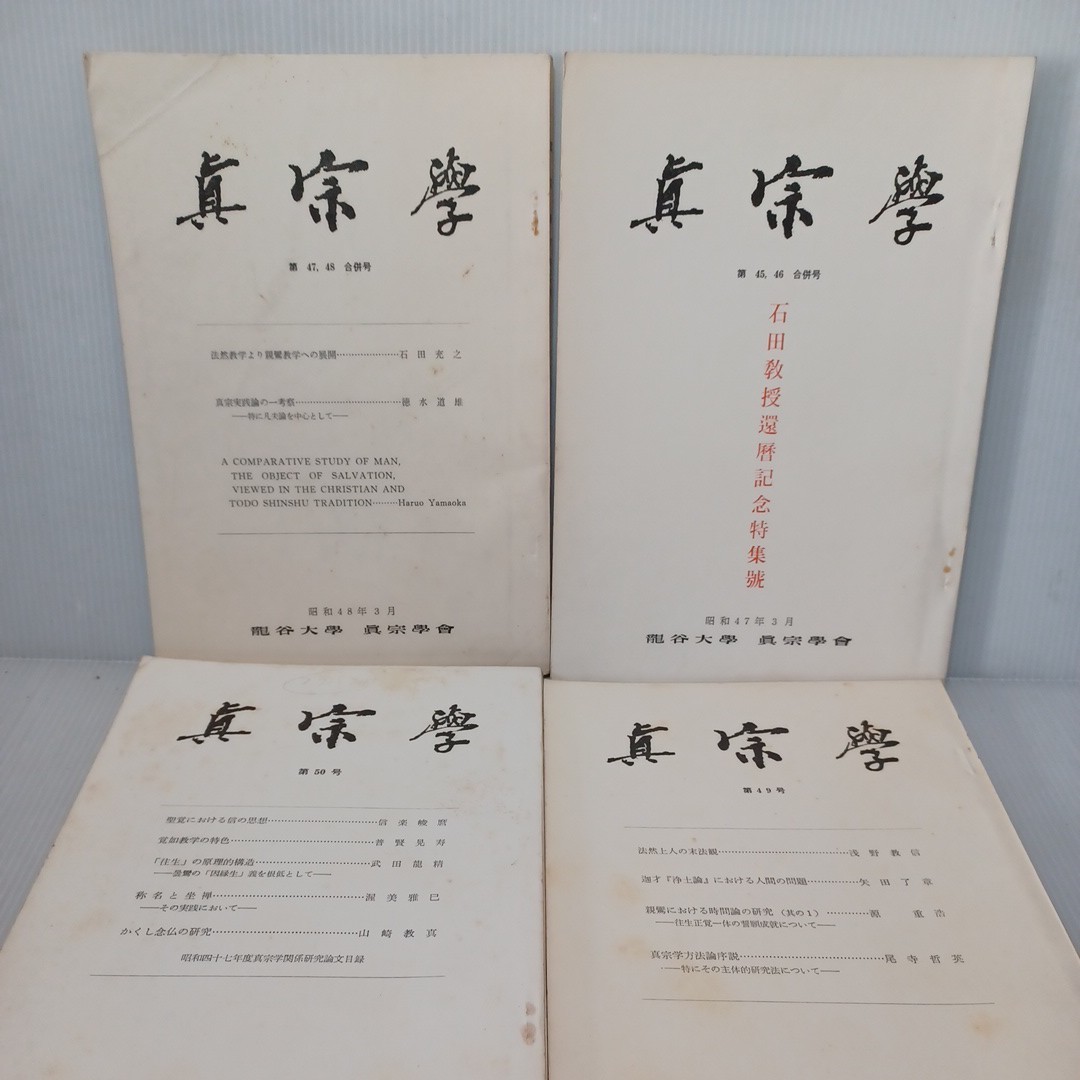 真宗學
第 47, 48 合併号
法然教学より親鸞教学への展開…………………石田充之
真宗実践論の一考察………………………………徳永道雄
――特に凡夫論を中心として――
A COMPARATIVE STUDY OF MAN,
THE OBJECT OF SALVATION,
VIEWED IN THE CHRISTIAN AND
TODO SHINSHU TRADITION………Haruo Yamaoka
昭和48年3月
龍谷大學 眞宗學會
真宗學
第 45, 46 合併号
石田教授還暦記念特集號
昭和47年3月
龍谷大學 眞宗學會
真宗學
第50号
聖覚における信の思想………………………………信楽峻麿
覚如教学の特色…………………………………………普賢晃寿
「往生」の原理的構造…………………………………武田龍精
――曇鸞の「因縁生」義を根低として――
称名と坐禅………………………………………………渥美雅巳
――その実践において――
かくし念仏の研究………………………………………山崎教真
昭和四十七年度真宗学関係研究論文目録
真宗學
第49号
法然上人の末法観………………………………………浅野教信
迦才『浄土論』における人間の問題……………矢田了章
親鸞における時間論の研究（其の1）……………源重浩
――往生正覚一体の誓願成就について――
真宗学方法論序説………………………………………尾寺哲英
――特にその主体的研究法について――